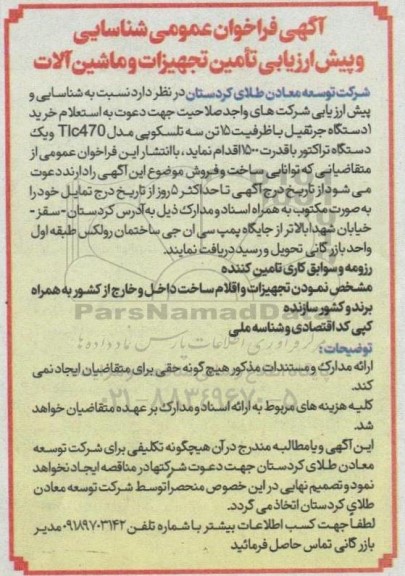 آگهی فراخوان عمومی شناسایی
وپیش ارزیابی تأمین تجهیزات وماشین آلات
شرکت توسعه معادن طلای کردستان در نظر دارد نسبت به شناسایی و
پیش ارزیابی شرکت های واجد صلاحیت جهت دعوت به استعلام خرید
۱دستگاه جرثقیل با ظرفیت ۱۵ تن سه تلسکوپی مدل Tlc470 ویک
دستگاه تراکتور با قدرت ۱۵۰۰ اقدام نماید ، با انتشار این فراخوان عمومی از
متقاضیانی که توانایی ساخت و فروش موضوع این آگهی را دارند دعوت
می شود از تاریخ درج آگهی تا حداکثر ۵ روز از تاریخ درج تمایل خود را
به صورت مکتوب به همراه اسناد و مدارک ذیل به آدرس کردستان - سقز -
خیابان شهدا بالاتر از جایگاه پمپ سی ان جی ساختمان رولکس طبقه اول
واحد بازرگانی تحویل و رسید دریافت نمایند.
رزومه و سوابق کاری تامین کننده
مشخص نمودن تجهیزات و اقلام ساخت داخل و خارج از کشور به همراه
برند و کشور سازنده
کپی کد اقتصادی و شناسه ملی
توضیحات :
ارائه مدارک و مستندات مذکور هیچ گونه حقی برای متقاضیان ایجاد نمی
کند.
کلیه هزینه های مربوط به ارائه اسناد و مدارک بر عهده متقاضیان خواهد
شد.
این آگهی و یا مطالبه مندرج در آن هیچگونه تکلیفی برای شرکت توسعه
معادن طلای کردستان جهت دعوت شرکتها در مناقصه ایجاد نخواهد
نمود و تصمیم نهایی در این خصوص منحصرا توسط شرکت توسعه معادن
طلای کردستان اتخاذ می گردد.
لطفا جهت کسب اطلاعات بیشتر با شماره تلفن ۰۹۱۸۹۷۰۳۱۴۲ مدیر
بازرگانی تماس حاصل فرمائید
ParsNamadData
۰۲۱-۸۸۳۴۹۶۷۰-۵